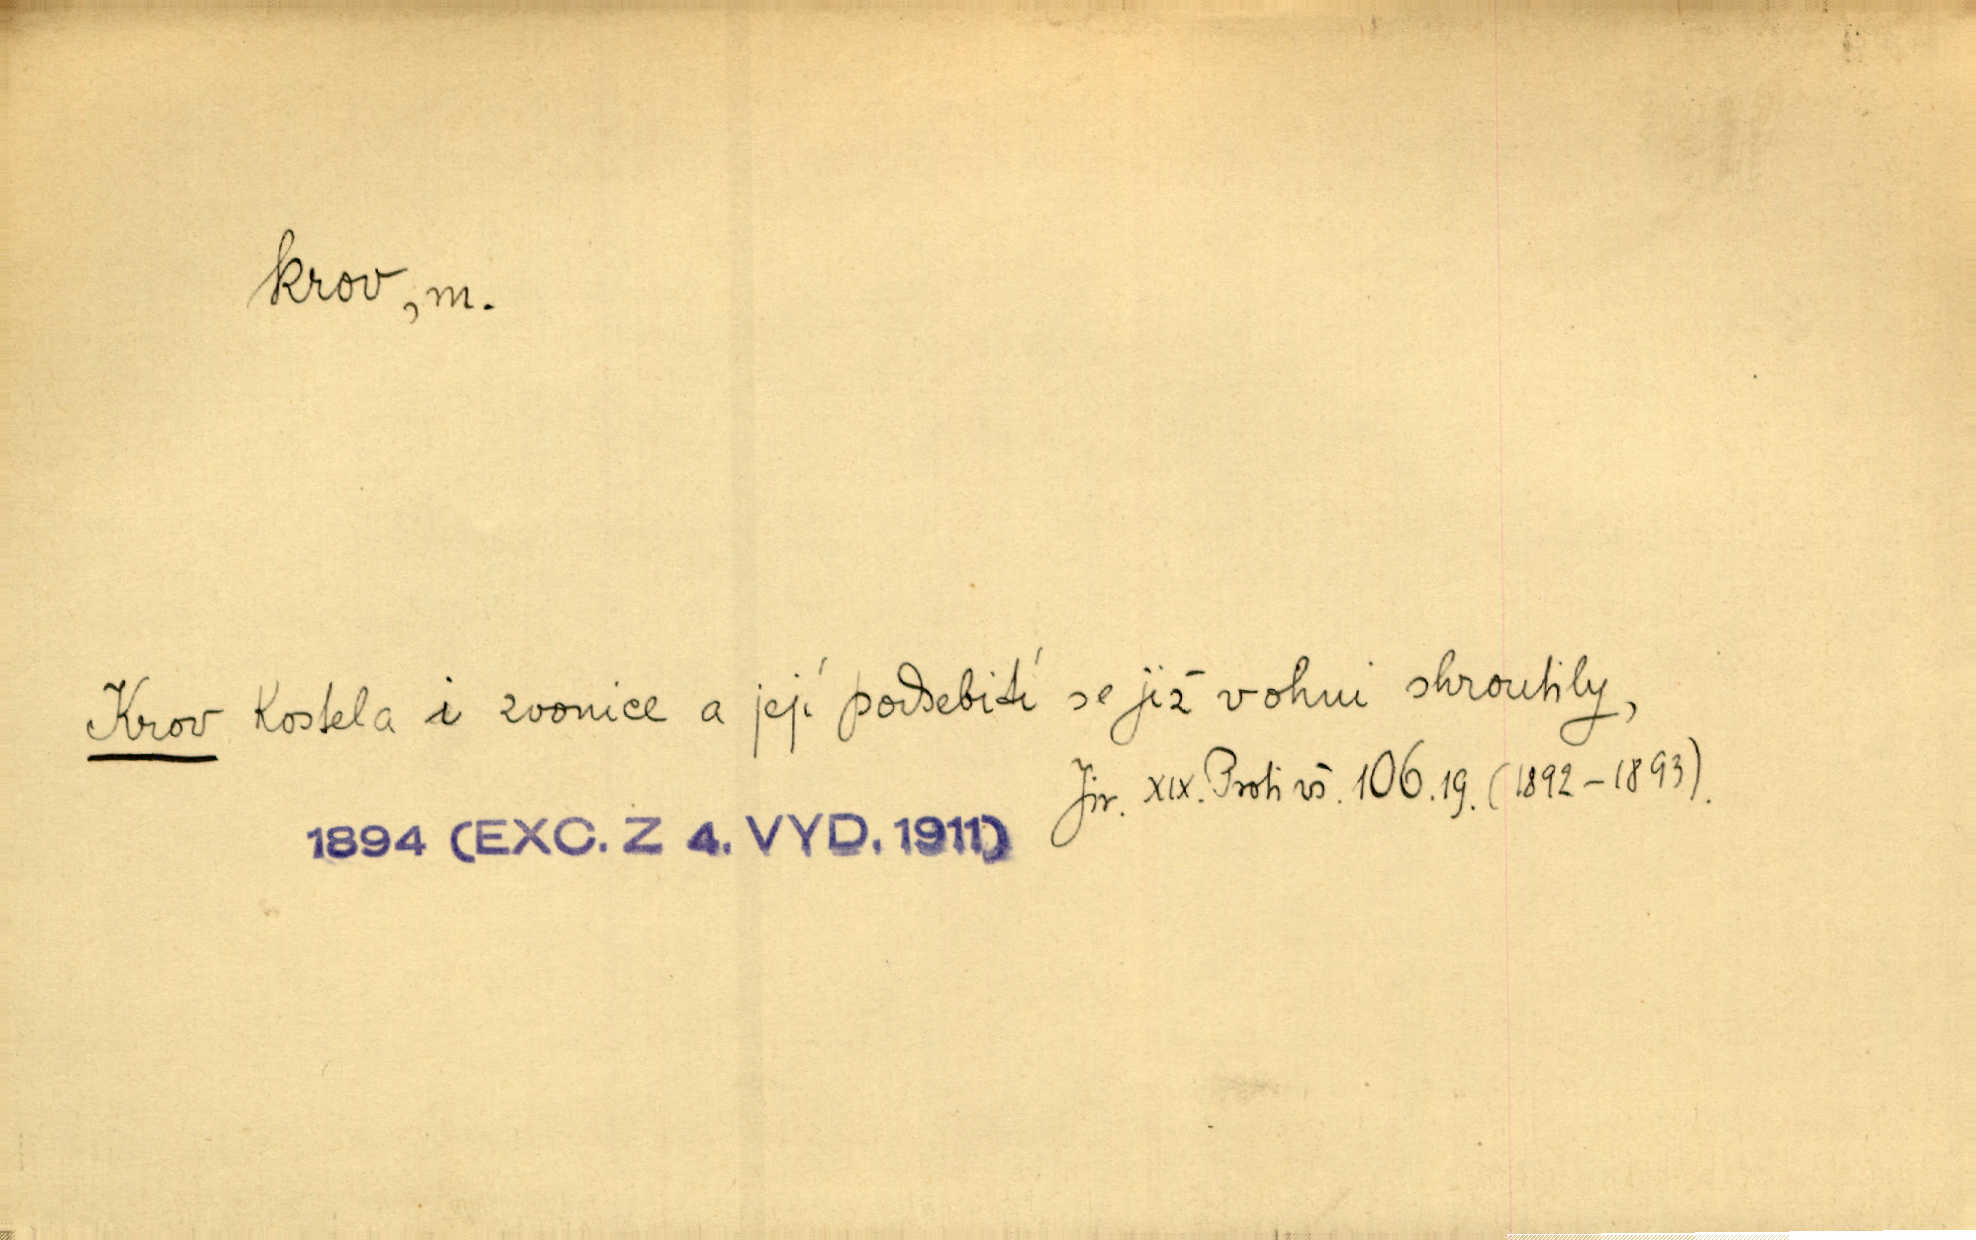 krov, m.
Krov kostela i zvonice a její podsebití se již v ohni shroutily,
Jir. XIX. Proti vš. 106.19. (1892-1893).
1894 (EXC. Z 4. VYD. 1911)